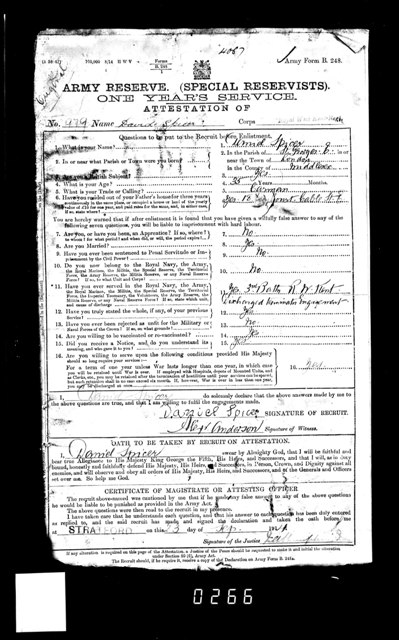 4067
(3 38 47) Forms B. 248. Army Form B. 248.
ARMY RESERVE. (SPECIAL RESERVISTS).
ONE YEAR'S SERVICE.
ATTESTATION OF
No. Name Daniel Spicer Corps
Questions to be put to the Recruit before Enlistment.
1. What is your Name? 1. Daniel Spicer
2. In or near what Parish or Town were you born? 2. In the Parish of
near the Town of London
in the County of Middlesex
3. Are you a British Subject? 3. Yes
4. What is your Age? 4. 35 Years Months.
5. What is your Trade or Calling? 5. Carman
6. Have you resided out of your Father's house for three years
continuously in the same place, or occupied a house or land of the yearly
value of £10 for one year, and paid rates for the same, and, in either case,
if so, state where? 6. Yes
You are hereby warned that if after enlistment it is found that you have given a wilfully false answer to any of the
following seven questions, you will be liable to imprisonment with hard labour.
7. Are you, or have you been, an Apprentice? If so, where?
to whom? for what period? and when did, or will, the period expire? 7. No
8. Are you Married? 8. Yes
9. Have you ever been sentenced to Penal Servitude or Im-
prisonment by the Civil Power? 9. No
10. Do you now belong to the Royal Navy, the Army,
the Royal Marines, the Militia, the Special Reserve, the Territorial
Force, the Army Reserve, the Militia Reserve, or any Naval Reserve
Force? If so, to what Unit and Corps? 10. No
11. Have you ever served in the Royal Navy, the Army,
the Royal Marines, the Militia, the Special Reserve, the Territorial
Force, the Imperial Yeomanry, the Volunteers, the Army Reserve, the
Militia Reserve, or any Naval Reserve Force? If so, state which unit,
and cause of discharge. 11. Yes 3rd Batt. R. W. Kent
Discharged terminated Engagement
12. Have you truly stated the whole, if any, of your previous
Service? 12. Yes
13. Have you ever been rejected as unfit for the Military or
Naval Forces of the Crown? If so, on what grounds? 13. No
14. Are you willing to be vaccinated or re-vaccinated? 14. Yes
15. Did you receive a Notice, and do you understand its
meaning, and who gave it to you? 15. Yes
16. Are you willing to serve upon the following conditions provided His Majesty
should so long require your services:—
For a term of one year unless War lasts longer than one year, in which case
you will be retained until War is over. If employed with Hospitals, depots of Mounted Units, and
as Clerks, etc., you may be retained after the termination of hostilities until your services can be spared,
but such retention shall in no case exceed six months. If, however, War is over in less than one year,
you may be discharged 16. Yes
I, do solemnly declare that the above answers made by me to
the above questions are true, and that I am willing to fulfil the engagements made.
Daniel Spicer SIGNATURE OF RECRUIT.
Anderson Signature of Witness.
OATH TO BE TAKEN BY RECRUIT ON ATTESTATION.
I, Daniel Spicer swear by Almighty God, that I will be faithful and
bear true Allegiance to His Majesty King George the Fifth, His Heirs, and Successors, and that I will, as in duty
bound, honestly and faithfully defend His Majesty, His Heirs, and Successors, in Person, Crown, and Dignity against all
enemies, and will observe and obey all orders of His Majesty, His Heirs and Successors, and of the Generals and Officers
set over me. So help me God.
CERTIFICATE OF MAGISTRATE OR ATTESTING OFFICER
The recruit above-named was cautioned by me that if he made any false answer to any of the above questions
he would be liable to be punished as provided in the Army Act.
The above questions were then read to the recruit in my presence.
I have taken care that he understands each question, and that his answer to each question has been duly entered
as replied to, and the said recruit has made and signed the declaration and taken the oath before me
at STRATFORD on this day of
Signature of the Justice
If any alteration is required on this page of the Attestation, a Justice of the Peace should be requested to make it and initial the alteration
under Section 80 (6), Army Act.
The Recruit should, if he require it, receive a copy of the Declaration on Army Form B. 248a.
0266